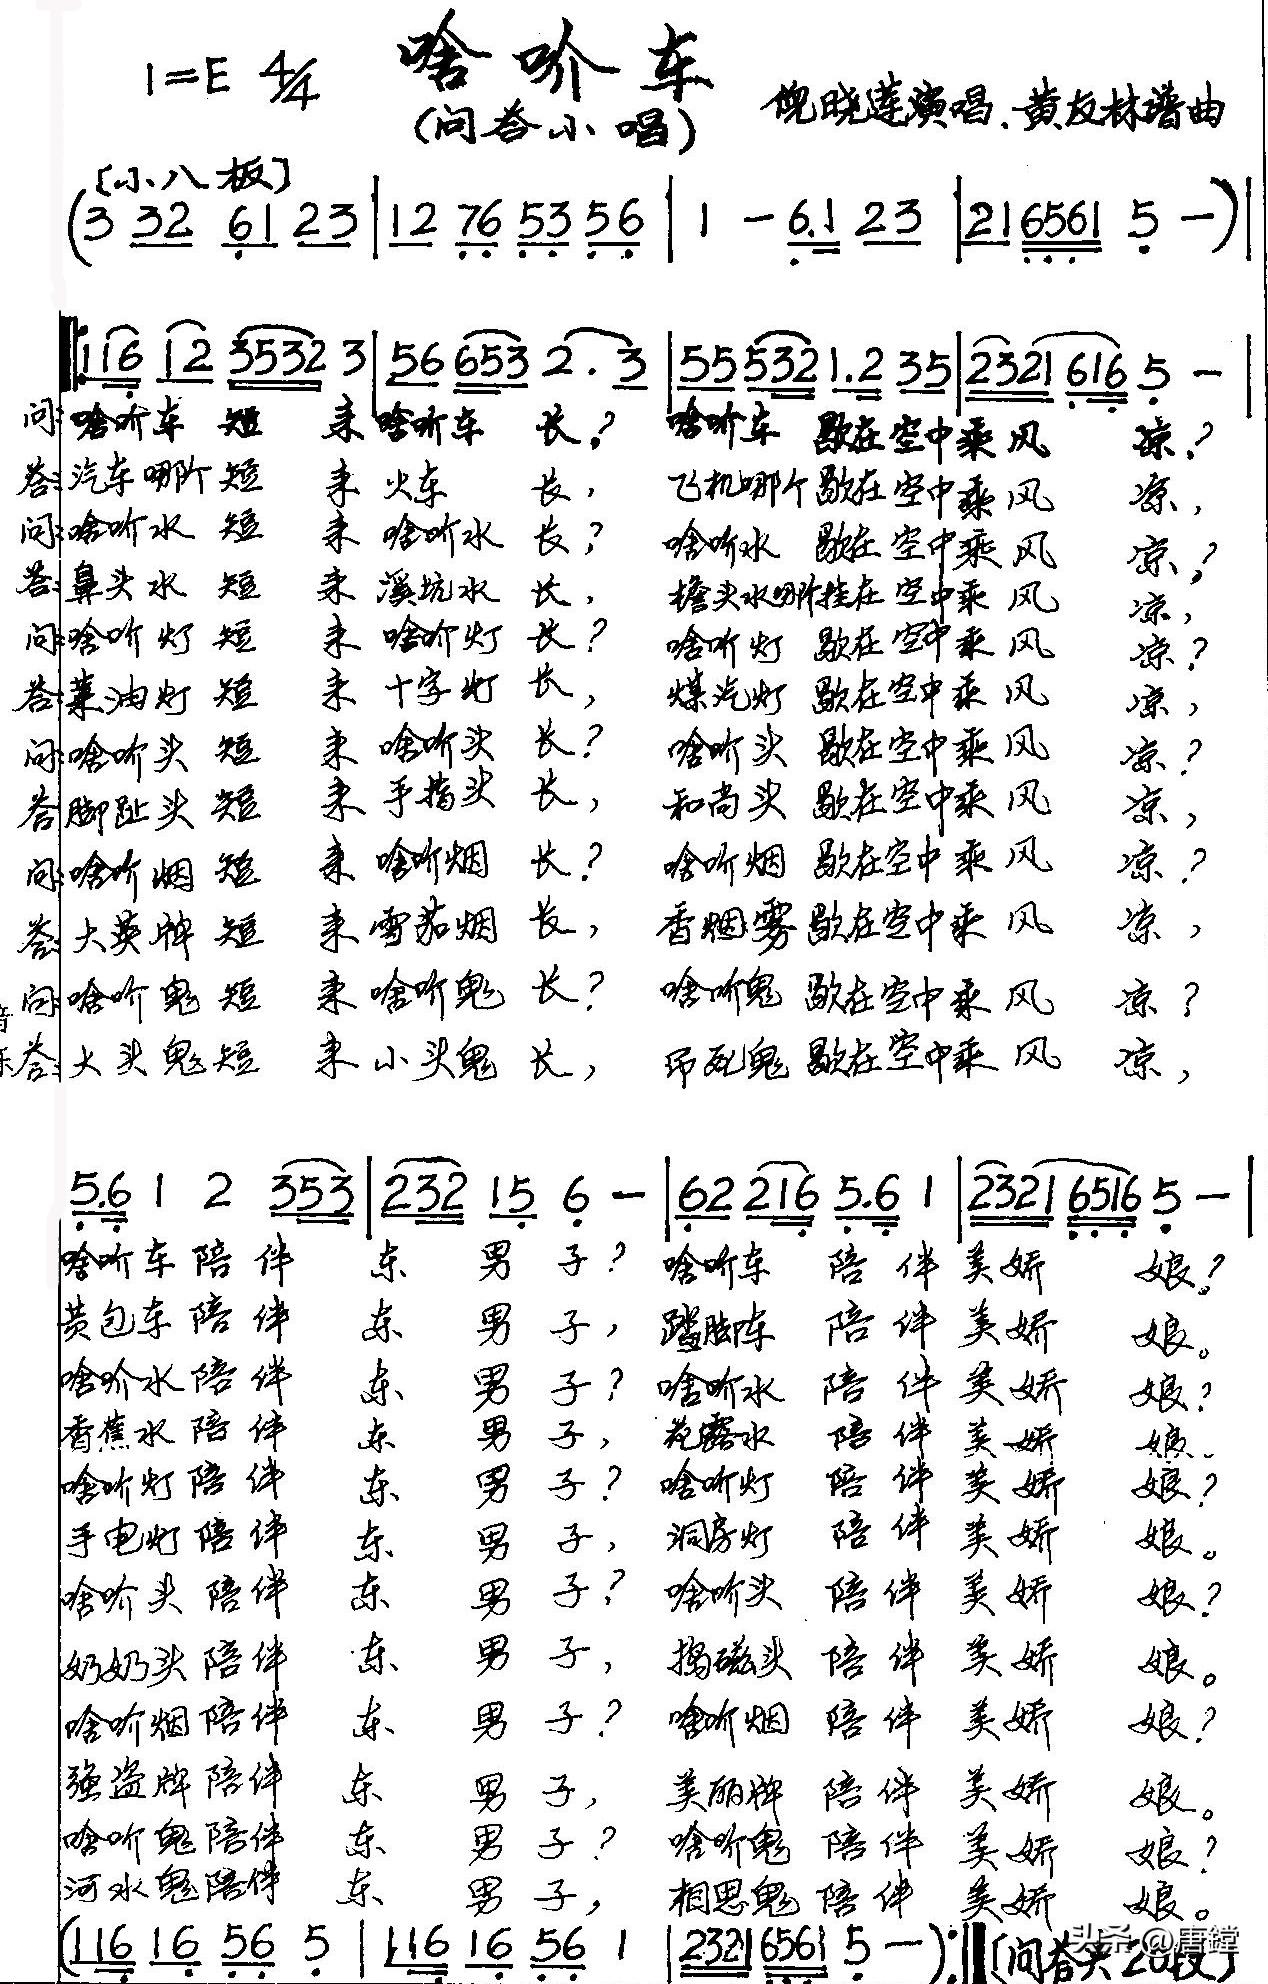 啥吤车
1=E 4/4
(问答小唱)
倪晓莲演唱、黄友林谱曲
〔小八板〕
(3 32 61 23|12 76 53 56|1 - 6.1 23|21 6561 5 -)|
116 12 3532 3|56 653 2. 3|55 532 1.2 35|2321 616 5 -|
问:啥吤车短来啥吤车长?啥吤车歇在空中乘风凉?
答:汽车哪吤短来火车长,飞机哪个歇在空中乘风凉,
问:啥吤水短来啥吤水长?啥吤水歇在空中乘风凉?
答:鼻头水短来溪坑水长,檐头水哪吤挂在空中乘风凉,
问:啥吤灯短来啥吤灯长?啥吤灯歇在空中乘风凉?
答:菜油灯短来十字灯长,煤汽灯歇在空中乘风凉,
问:啥吤头短来啥吤头长?啥吤头歇在空中乘风凉?
答:脚趾头短来手指头长,和尚头歇在空中乘风凉,
问:啥吤烟短来啥吤烟长?啥吤烟歇在空中乘风凉?
答:大英牌短来雪茄烟长,香烟雾歇在空中乘风凉,
问:啥吤鬼短来啥吤鬼长?啥吤鬼歇在空中乘风凉?
答:大头鬼短来小头鬼长,吊死鬼歇在空中乘风凉,
5.6 1 2 353|232 15 6 -|62 216 5.6 1|2321 6516 5 -|
啥吤车陪伴东男子?啥吤车陪伴美娇娘?
黄包车陪伴东男子,踏脚车陪伴美娇娘。
啥吤水陪伴东男子?啥吤水陪伴美娇娘?
香蕉水陪伴东男子,花露水陪伴美娇娘.
啥吤灯陪伴东男子?啥吤灯陪伴美娇娘?
手电灯陪伴东男子,洞房灯陪伴美娇娘。
啥吤头陪伴东男子?啥吤头陪伴美娇娘?
奶奶头陪伴东男子,捣磁头陪伴美娇娘。
啥吤烟陪伴东男子?啥吤烟陪伴美娇娘?
强盗牌陪伴东男子,美丽牌陪伴美娇娘。
啥吤鬼陪伴东男子?啥吤鬼陪伴美娇娘?
河水鬼陪伴东男子,相思鬼陪伴美娇娘。
(116 16 56 5|116 16 56 1|2321 6561 5 -):‖(问答共20段)
头条 @唐鏜